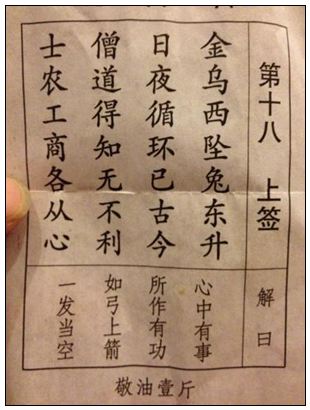 第十八 上签
金乌西坠兔东升
日夜循环已古今
僧道得知无不利
士农工商各从心
解曰
心中有事
所作有功
如弓上箭
一发当空
敬油壹斤